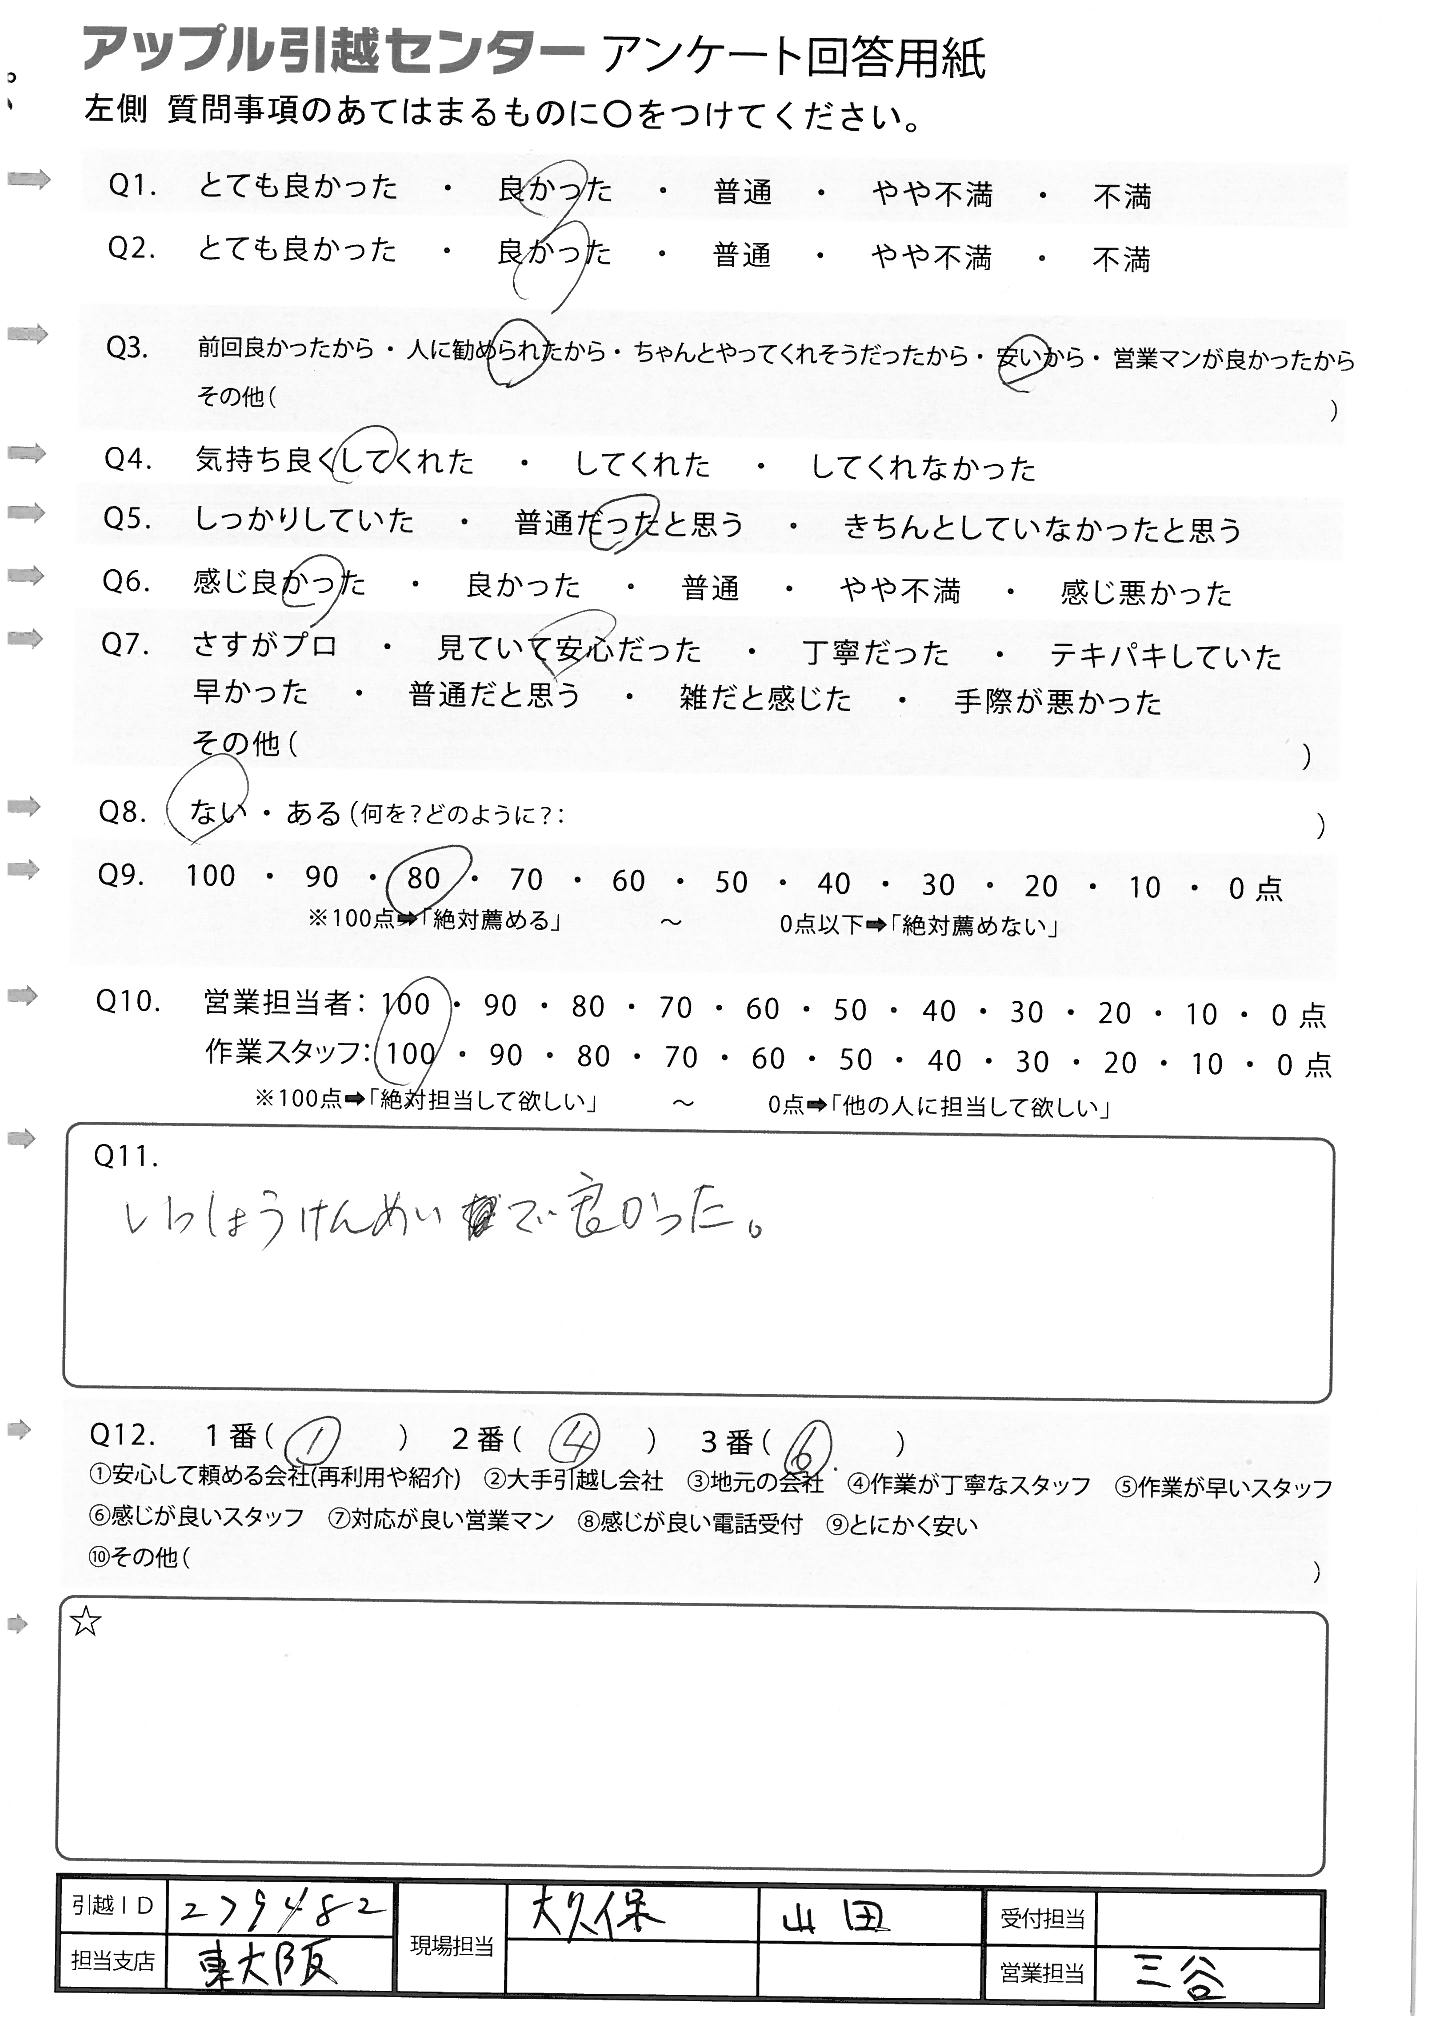 アップル引越センター アンケート回答用紙
左側 質問事項のあてはまるものに〇をつけてください。
Q1. とても良かった ・ 良かった ・ 普通 ・ やや不満 ・ 不満
Q2. とても良かった ・ 良かった ・ 普通 ・ やや不満 ・ 不満
Q3. 前回良かったから・人に勧められたから・ちゃんとやってくれそうだったから・安いから・営業マンが良かったから
その他( )
Q4. 気持ち良くしてくれた ・ してくれた ・ してくれなかった
Q5. しっかりしていた ・ 普通だったと思う ・ きちんとしていなかったと思う
Q6. 感じ良かった ・ 良かった ・ 普通 ・ やや不満 ・ 感じ悪かった
Q7. さすがプロ ・ 見ていて安心だった ・ 丁寧だった ・ テキパキしていた
早かった ・ 普通だと思う ・ 雑だと感じた ・ 手際が悪かった
その他( )
Q8. ない・ある(何を?どのように?: )
Q9. 100 ・ 90 ・ 80 ・ 70 ・ 60 ・ 50 ・ 40 ・ 30 ・ 20 ・ 10 ・ 0点
※100点➡「絶対薦める」 ～ 0点以下➡「絶対薦めない」
Q10. 営業担当者: 100 ・ 90 ・ 80 ・ 70 ・ 60 ・ 50 ・ 40 ・ 30 ・ 20 ・ 10 ・ 0点
作業スタッフ: 100 ・ 90 ・ 80 ・ 70 ・ 60 ・ 50 ・ 40 ・ 30 ・ 20 ・ 10 ・ 0点
※100点➡「絶対担当して欲しい」 ～ 0点➡「他の人に担当して欲しい」
Q11.
いっしょうけんめいで良かった。
Q12. 1番( ① ) 2番( ④ ) 3番( ⑥ )
①安心して頼める会社(再利用や紹介) ②大手引越し会社 ③地元の会社 ④作業が丁寧なスタッフ ⑤作業が早いスタッフ
⑥感じが良いスタッフ ⑦対応が良い営業マン ⑧感じが良い電話受付 ⑨とにかく安い
⑩その他( )
☆
引越ID 279482 現場担当 大久保 山田 受付担当
担当支店 東大阪 営業担当 三谷